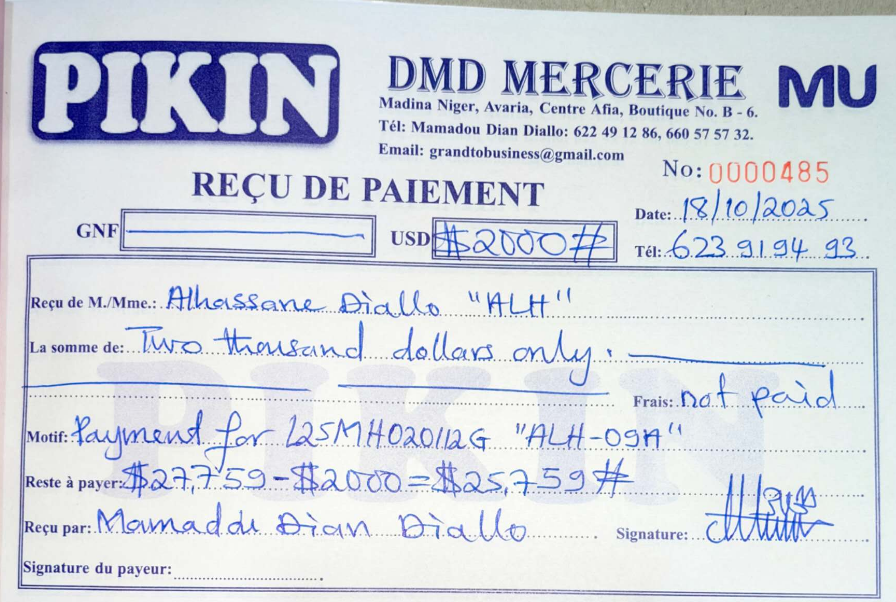 PIKIN
DMD MERCERIE
MU
Madina Niger, Avaria, Centre Afia, Boutique No. B - 6.
Tél: Mamadou Dian Diallo: 622 49 12 86, 660 57 57 32.
Email: grandtobusiness@gmail.com
No: 0000485
REÇU DE PAIEMENT
Date: 18/10/2025
GNF
USD $2000#
Tél: 623 91 94 93
Reçu de M./Mme.: Alhassane Diallo "ALH"
La somme de: Two thousand dollars only.
Frais: not paid
PIKIN
Motif: Payment for L25MH020112G "ALH-09A"
Reste à payer: $27,759-$2000=$25,759#
Reçu par: Mamaddu Dian Diallo
Signature:
Signature du payeur: